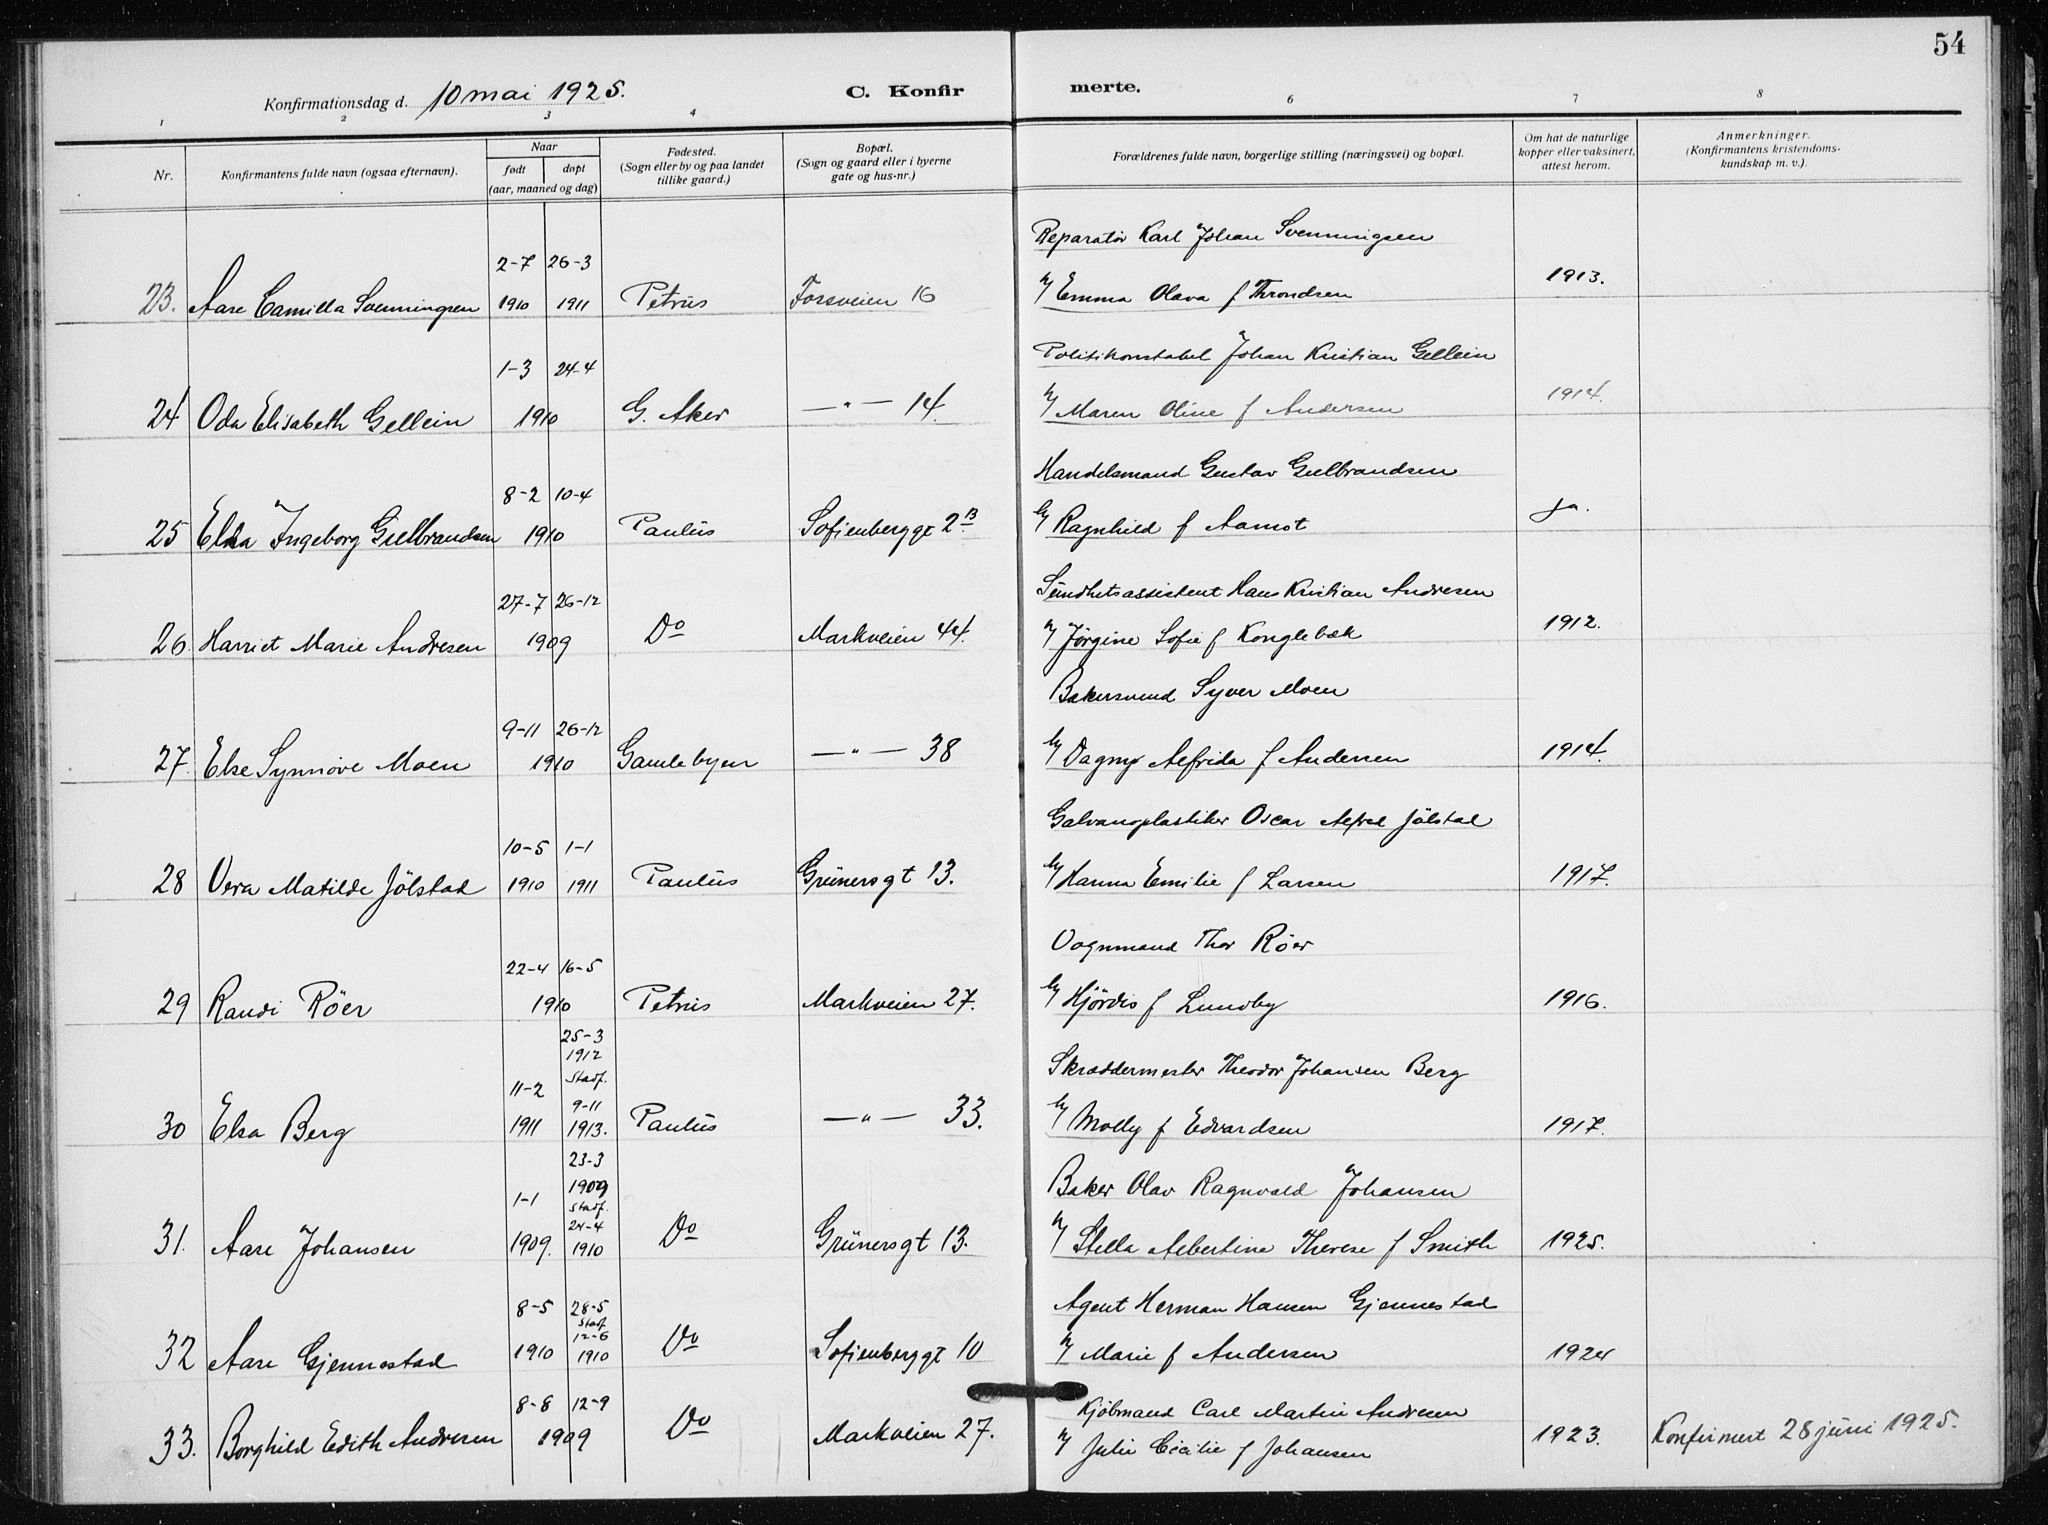 54
Konfirmationsdag d. 10 mai 1925. C. Konfirmerte.
1 2 3 4 6 7 8
Nr. Konfirmantens fulde navn (ogsaa efternavn). Naar født døpt (aar, maaned og dag) Fødested. (Sogn eller by og paa landet tillike gaard.) Bopæl. (Sogn og gaard eller i byerne gate og hus-nr.) Forældrenes fulde navn, borgerlige stilling (næringsvei) og bopæl. Om hat de naturlige kopper eller vaksinert, attest herom. Anmerkninger. (Konfirmantens kristendoms-kundskap m. v.).
Reparatør Karl Johan Svenningsen
2-7 26-3
23. Aase Camilla Svenningsen 1910 1911 Petrus Fossveien 16 h/ Emma Olava f Throndsen 1913.
Politikonstabel Johan Kristian Gellein
1-3 24-4
24 Oda Elisabeth Gellein 1910 G. Aker —"— 14. h/ Maren Oline f Andersen 1914.
Handelsmand Gustav Gulbrandsen
8-2 10-4
25 Elsa Ingeborg Gulbrandsen 1910 Paulus Sofienberggt 2 B h/ Ragnhild f Aamot ja.
Sundhetsassistent Hans Kristian Andresen
27-7 26-12
26. Harriet Marie Andresen 1909 Do Markveien 44. h/ Jørgine Sofie f Konglebæk 1912.
Bakersvend Syver Moen
9-11 26-12
27. Else Synnöve Moen 1910 Gamlebyen —"— 38 h/ Dagny Alfrida f Andersen 1914.
Galvanoplastiker Oscar Alfred Jölstad
10-5 1-1
28 Vera Matilde Jölstad 1910 1911 Paulus Grünersgt 13. h/ Hanna Emilie f Larsen 1917.
Vognmand Thor Röer
22-4 16-5
29 Randi Röer 1910 Petrus Markveien 27. h/ Hjördis f Lundby 1916.
25-3
1912
Stadf.
Skræddermester Theodor Johansen Berg
11-2 9-11
30 Elsa Berg 1911 1913. Paulus —"— 33. h/ Molly f Edvardsen 1917.
23-3
1909
Stadf.
Baker Olav Ragnvald Johansen
1-1 24-4
31. Aase Johansen 1909. 1910 Do Grünersgt 13. h/ Stella Albertine Therese f Smith 1925.
Agent Herman Hansen Gjennestad
8-5 28-5
Stadf.
12-6
32 Aase Gjennestad 1910 1910 Do Sofienberggt 10 h/ Marie f Andersen 1924
Kjöbmand Carl Martin Andresen
8-8 12-9
33. Borghild Edith Andresen 1909 Do Markveien 27. h/ Julie Cecilie f Johansen 1923. Konfirmert 28 juni 1925.